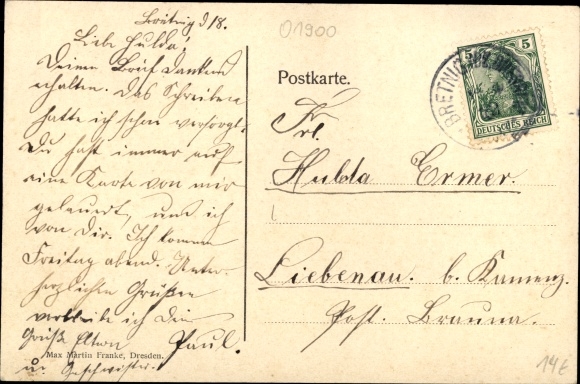 Bretnig 9/8.
Liebe Hulda!
Deinen Brief dankend
erhalten. Das Schreiben
hatte ich schon versorgt.
Du hast immer auf
eine Karte von mir
gelauert, und ich
von Dir. Ich komme
Freitag abend. Unter
herzlichen Grüßen
verbleibe ich Dein
Paul.
Grüße Eltern
u. Geschwister.
Max Martin Franke, Dresden.
01900
Postkarte.
5 5
DEUTSCHES REICH
BRETNIG
Frl.
Hulda Ermer.
Liebenau. b. Kamenz.
Post. Brauna.
14€